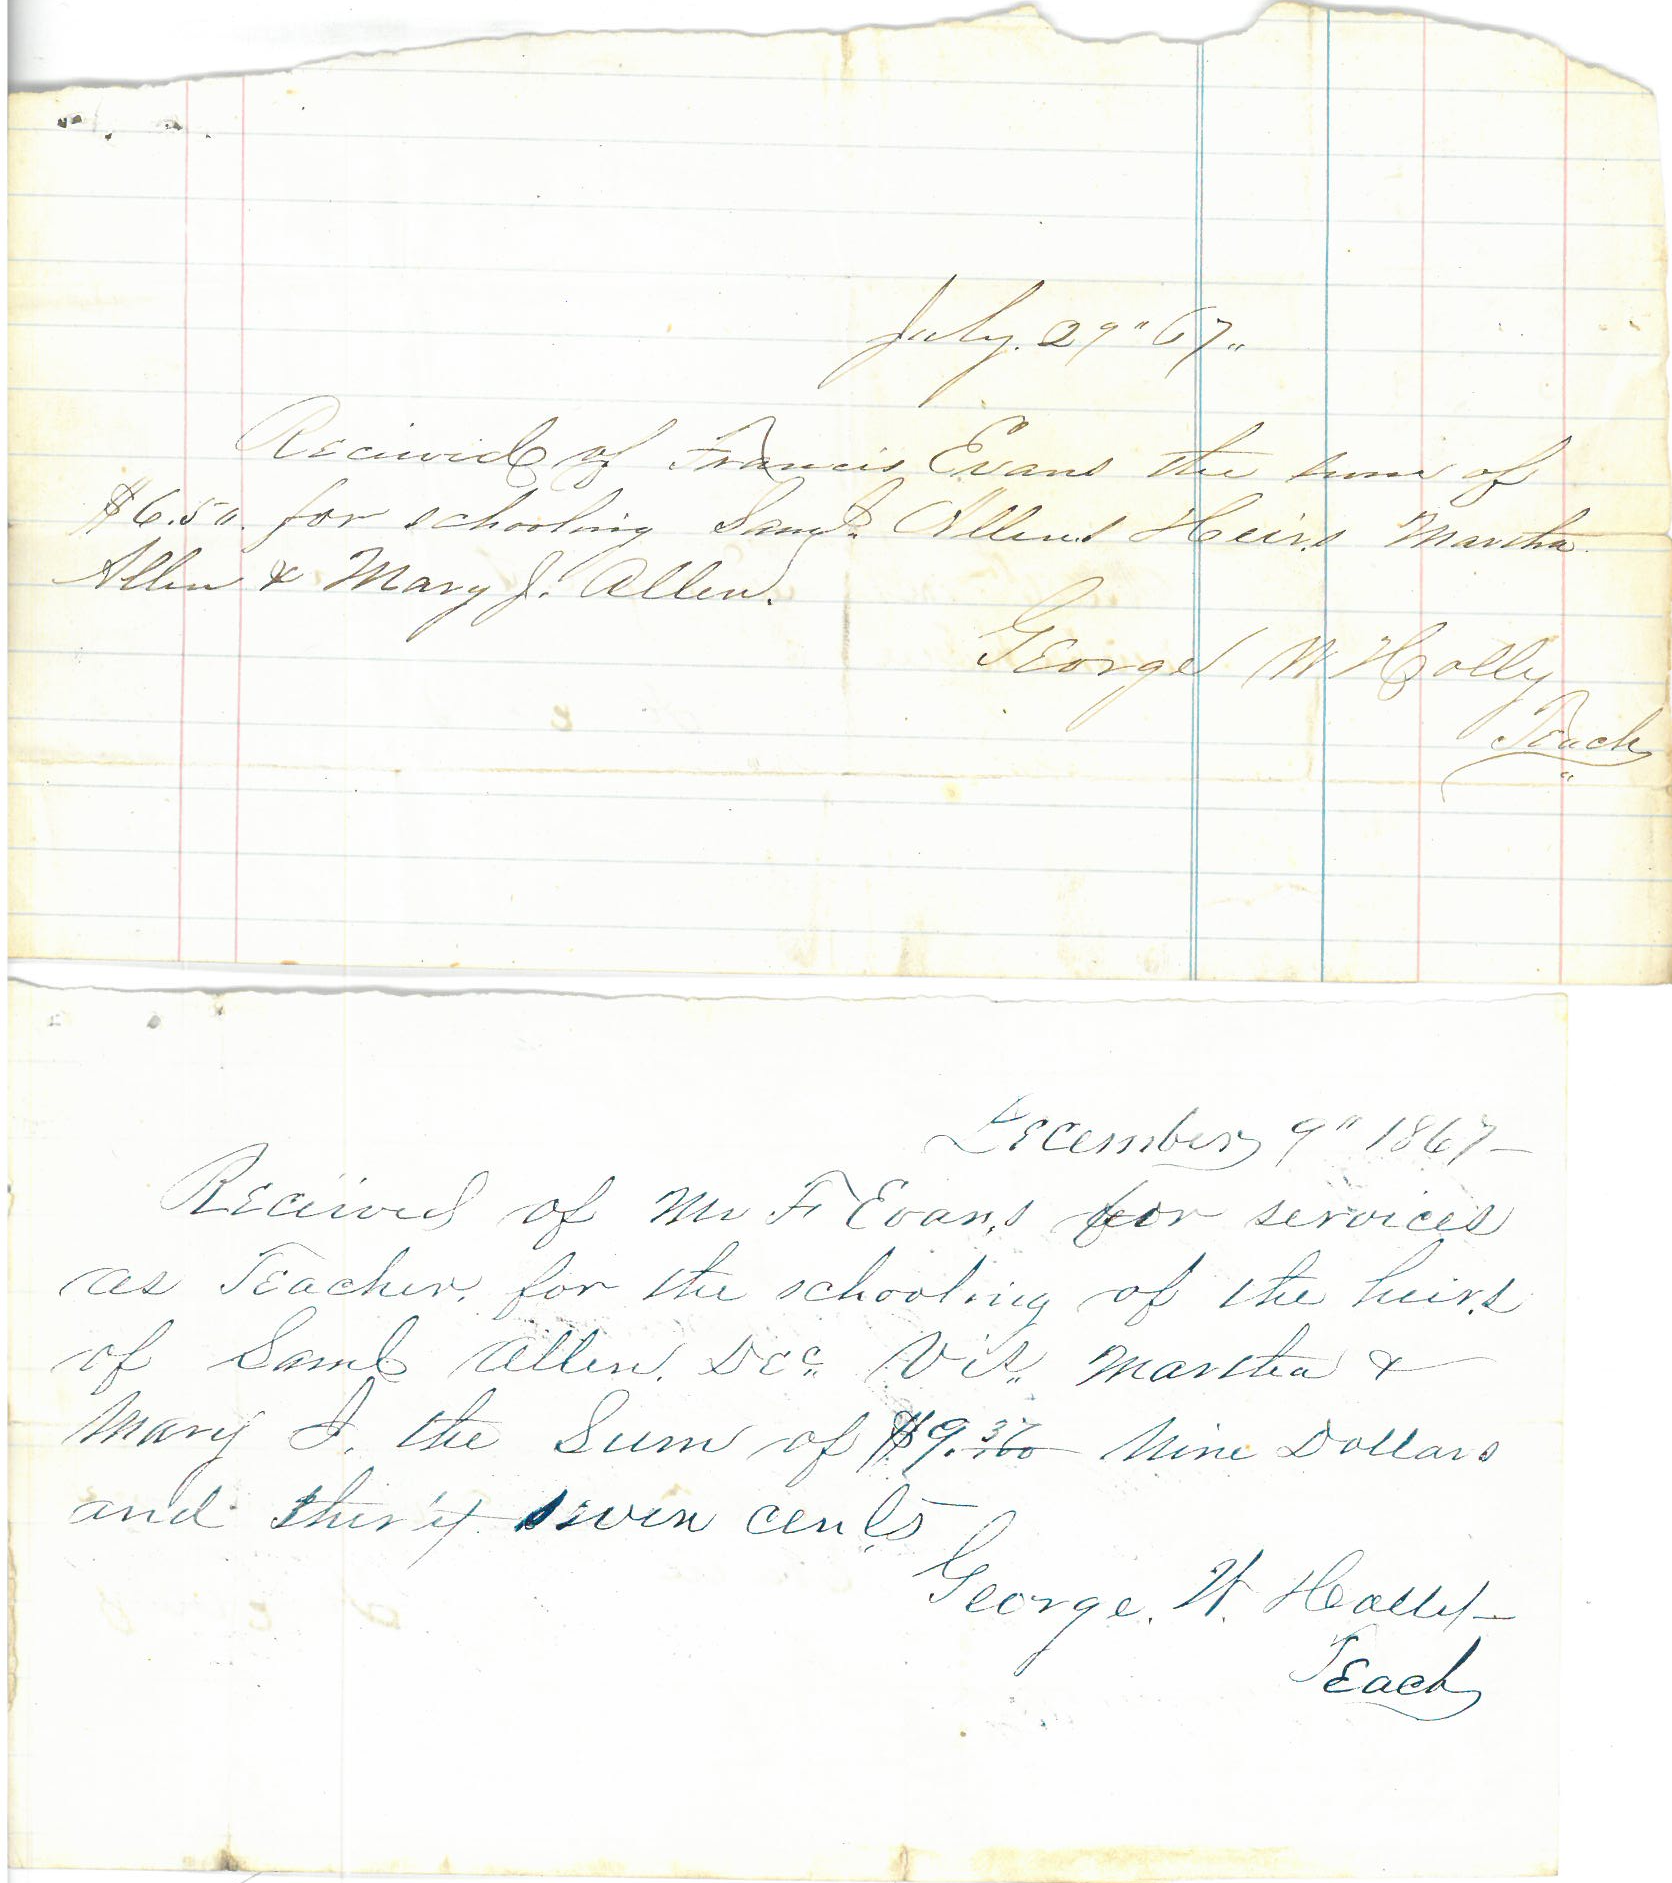 July. 29" 67"
Recived of Francis Evans the sum of
$6.50. for schooling Saml. Allens Heirs Martha
Allen & Mary J. Allen.
George W Holly
Teach
December 9" 1867-
Recived of Mr F Evans for services
as Teacher. for the schooling of the heirs
of Saml Allen. Dec. Vis. Martha &
Mary J. the Sum of $9.37/100 Nine Dollars
and thirty seven cents
George. W. Holly-
Teach